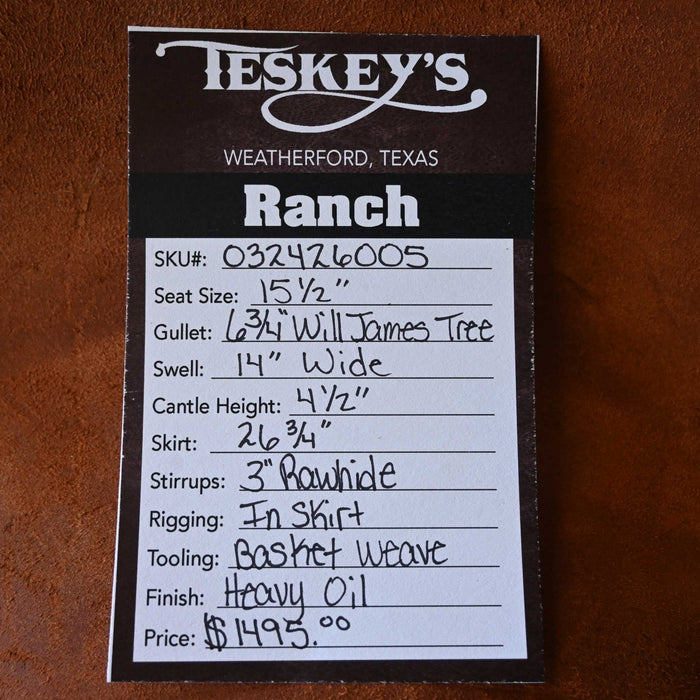 TESKEY'S
WEATHERFORD, TEXAS
Ranch
SKU#: 032426005
Seat Size: 15 1/2"
Gullet: 6 3/4" Will James Tree
Swell: 14" Wide
Cantle Height: 4 1/2"
Skirt: 26 3/4"
Stirrups: 3" Rawhide
Rigging: In Skirt
Tooling: Basket Weave
Finish: Heavy Oil
Price: $1495.00